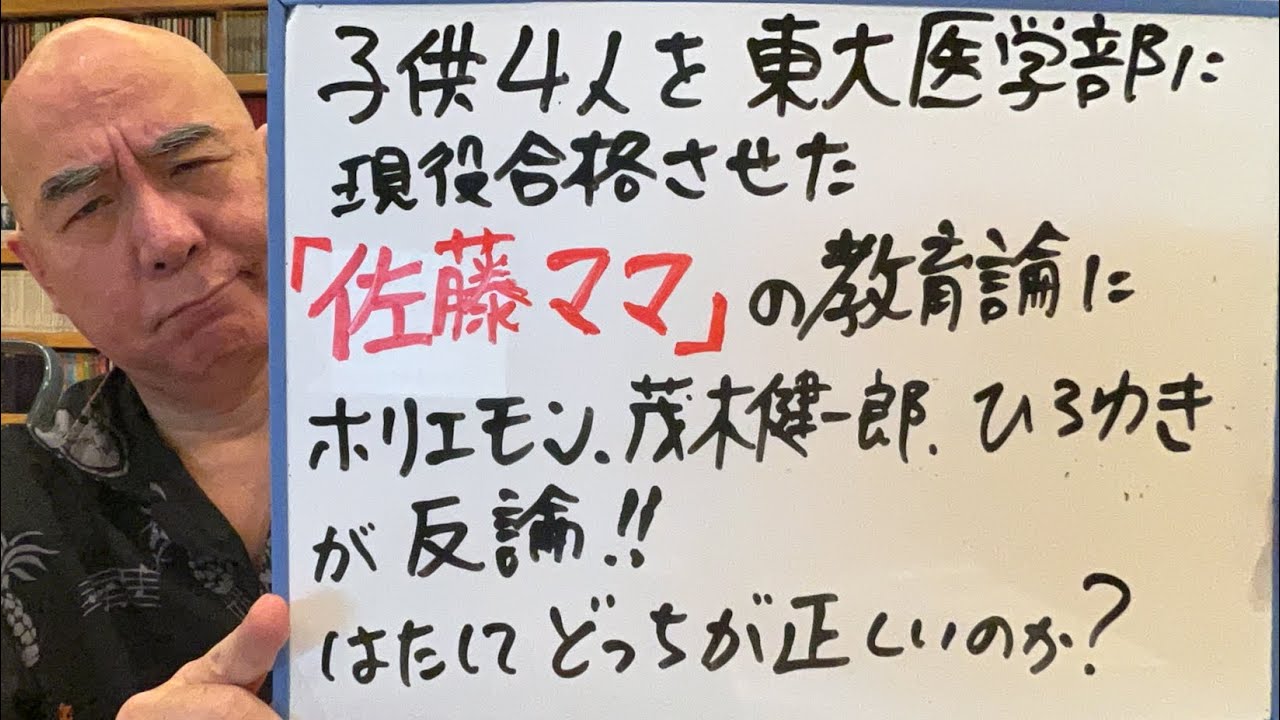 子供4人を東大医学部に
現役合格させた
「佐藤ママ」の教育論に
ホリエモン、茂木健一郎、ひろゆき
が反論!!
はたしてどっちが正しいのか?